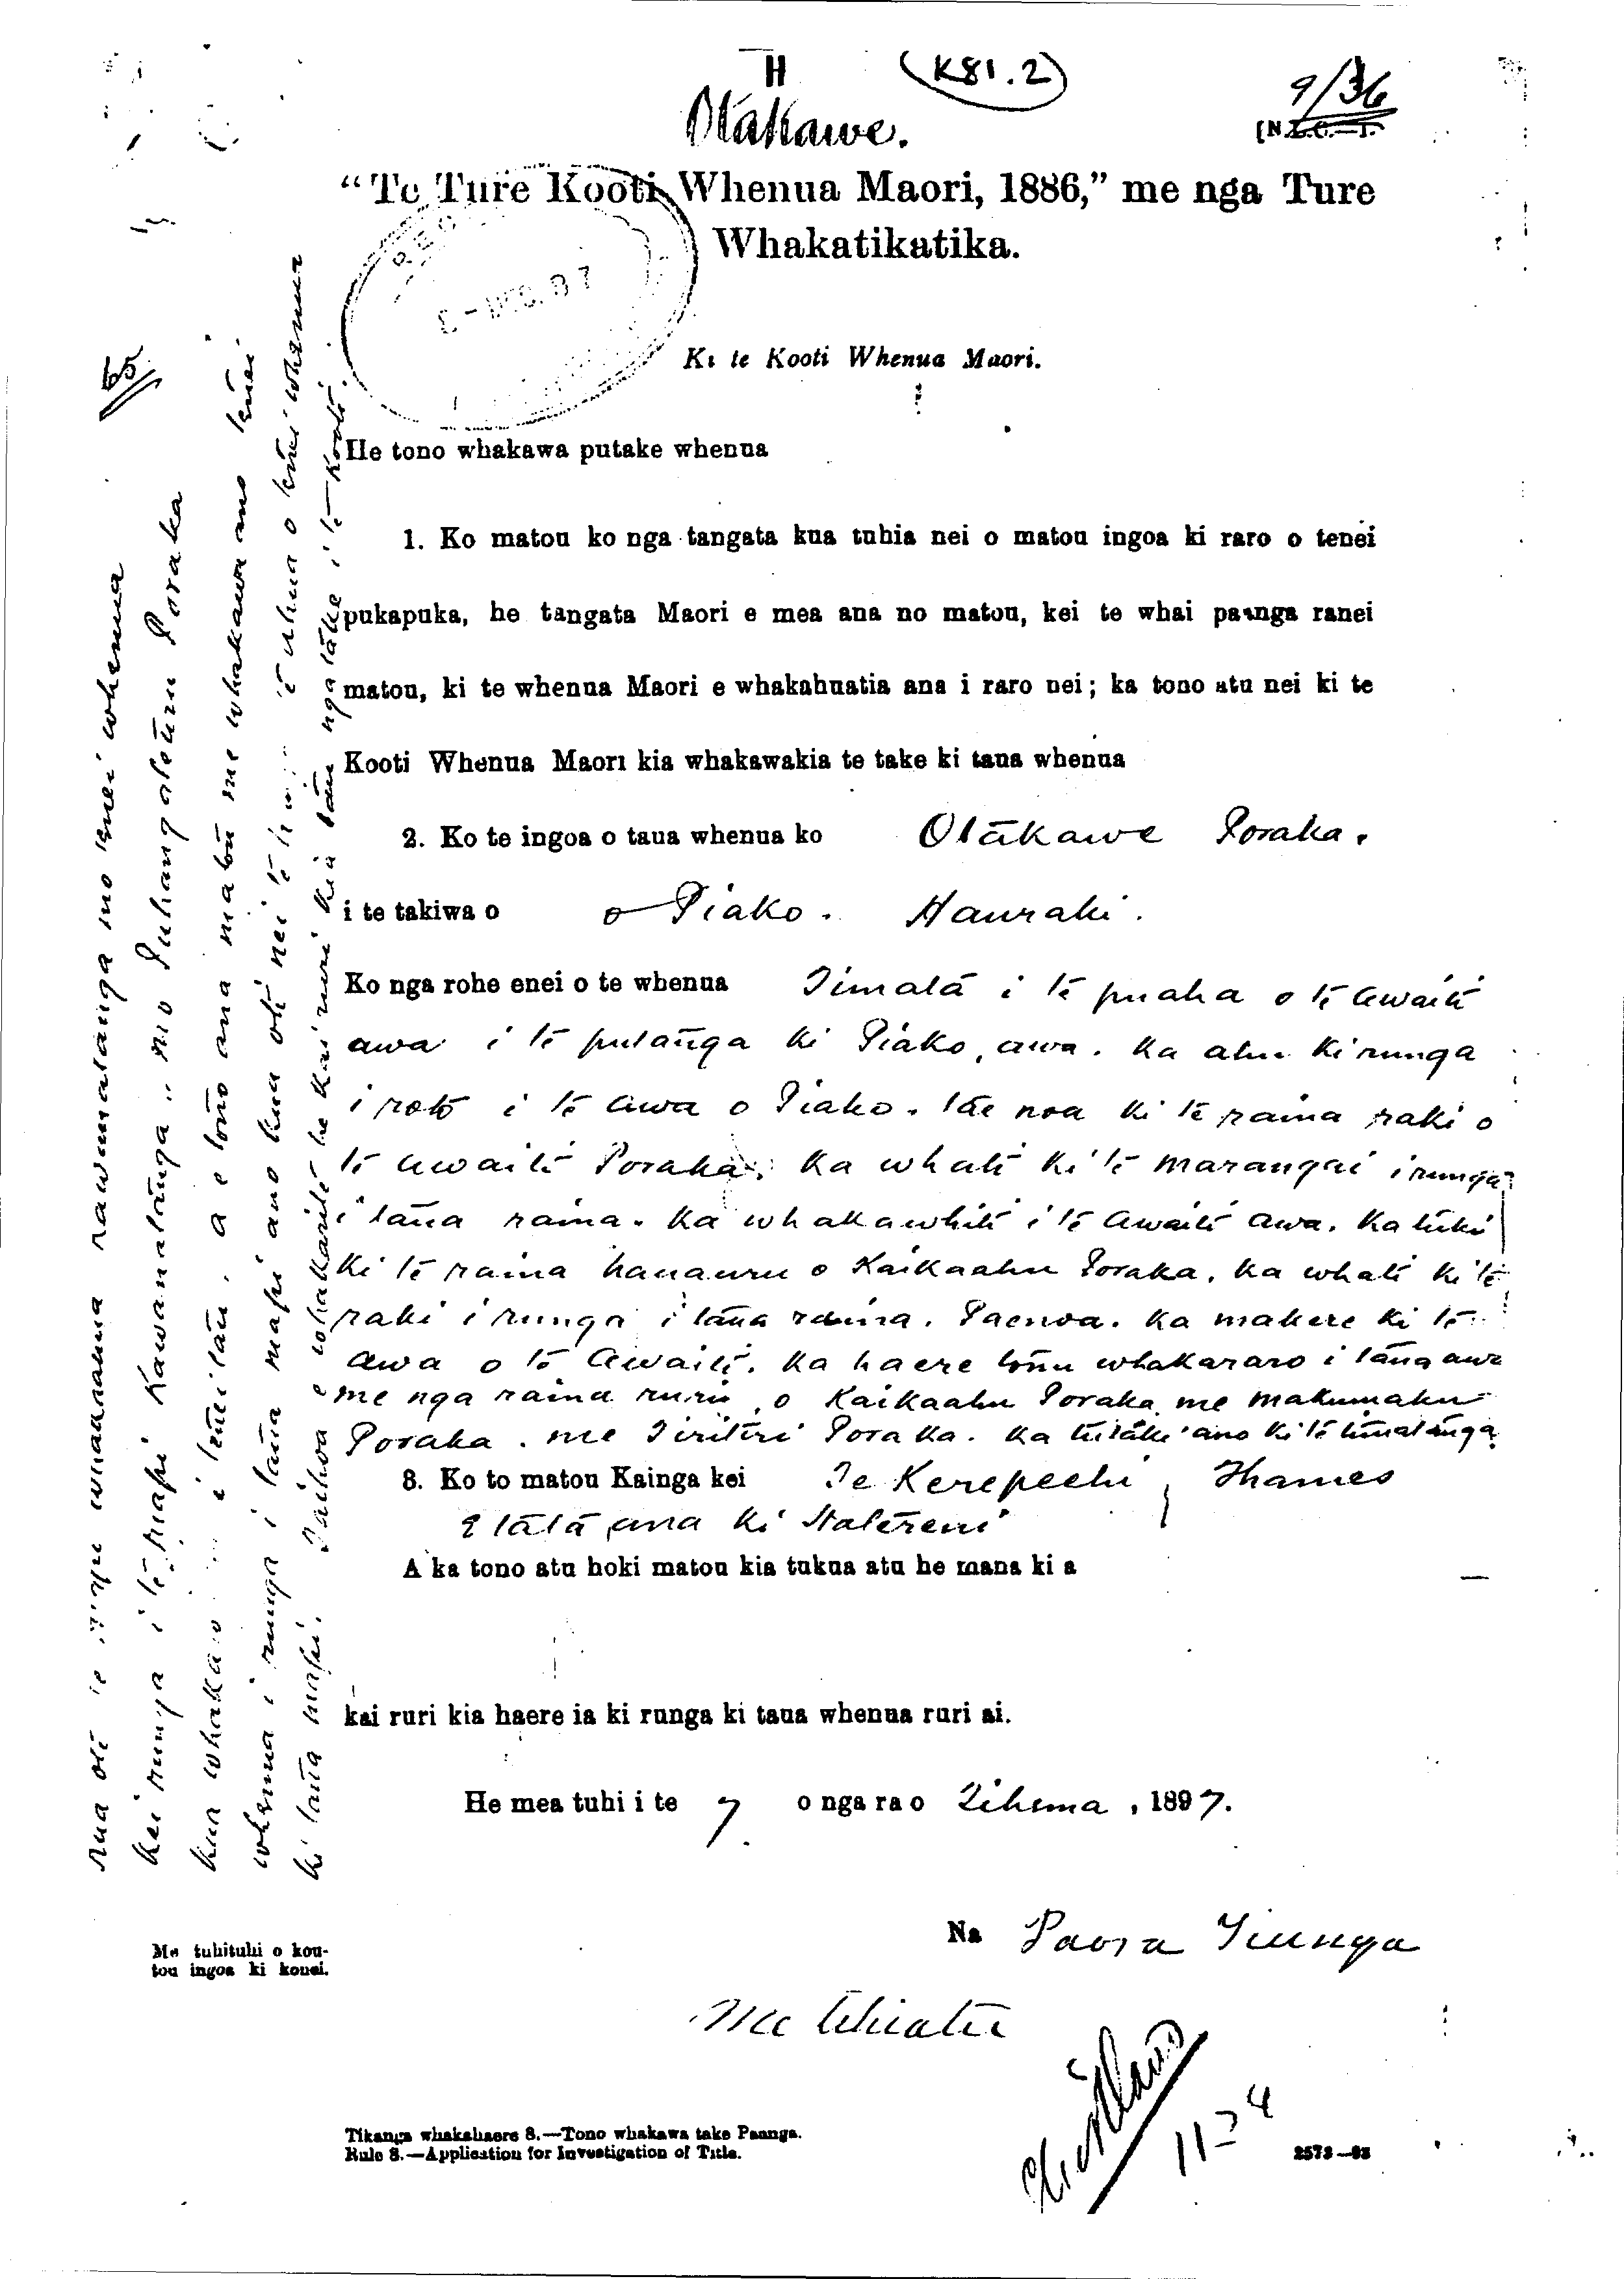 H
(K81.2)
9/36
Otakawe.
[N.L.C.—1.
“Te Ture Kooti Whenua Maori, 1886,” me nga Ture
Whakatikatika.
Ki te Kooti Whenua Maori.
65
He tono whakawa putake whenua
1. Ko matou ko nga tangata kua tuhia nei o matou ingoa ki raro o tenei
pukapuka, he tangata Maori e mea ana no matou, kei te whai paanga ranei
matou, ki te whenua Maori e whakahuatia ana i raro nei; ka tono atu nei ki te
Kooti Whenua Maori kia whakawakia te take ki taua whenua
2. Ko te ingoa o taua whenua ko Otakawe Poraka.
i te takiwa o o Piako. Hauraki.
Ko nga rohe enei o te whenua Timata i te puaha o te Awaiti
awa i te putanga ki Piako, awa. ka ahu ki runga
i roto i te awa o Piako. tae noa ki te raina raki o
te Awaiti Poraka. Ka whati ki te marangai i runga
i taua raina. Ka whakawhiti i te Awaiti awa. Ka tutuki
ki te raina hauauru o Kaikaahu Poraka, ka whati ki te
raki i runga i taua raina. Paenoa. ka makere ki te
awa o te Awaiti. ka haere tonu whakararo i taua awa
me nga raina ruri o Kaikaahu Poraka me Makumaku
Poraka. me Tiritiri Poraka. ka tutaki ano ki te timatanga
3. Ko to matou Kainga kei Te Kerepeehi, Thames
E tata ana ki Netereni
A ka tono atu hoki matou kia tukua atu he mana ki a
kai ruri kia haere ia ki runga ki taua whenua ruri ai.
He mea tuhi i te 7 o nga ra o Tihema, 1897.
Na Paora Tiunga
Me tuhituhi o kou-
tou ingoa ki konei.
kua oti te whakahaua rawatanga mo tenei whenua
kei runga i te mapi Kawanatanga .. mo Puhangateuru Poraka
kua whaka i tenei tau. a e tono ana matou me whakawa ano tenei
whenua i runga i taua mapi ano kua oti nei te te ahua o tenei whenua
ki taua mapi. Taihoa e whakaritea he kai ruri kia tau nga take i te Kooti.
11-24
Tikanga whakahaere 8.—Tono whakawa take Paanga.
Rule 8.—Application for Investigation of Title.
2573—93